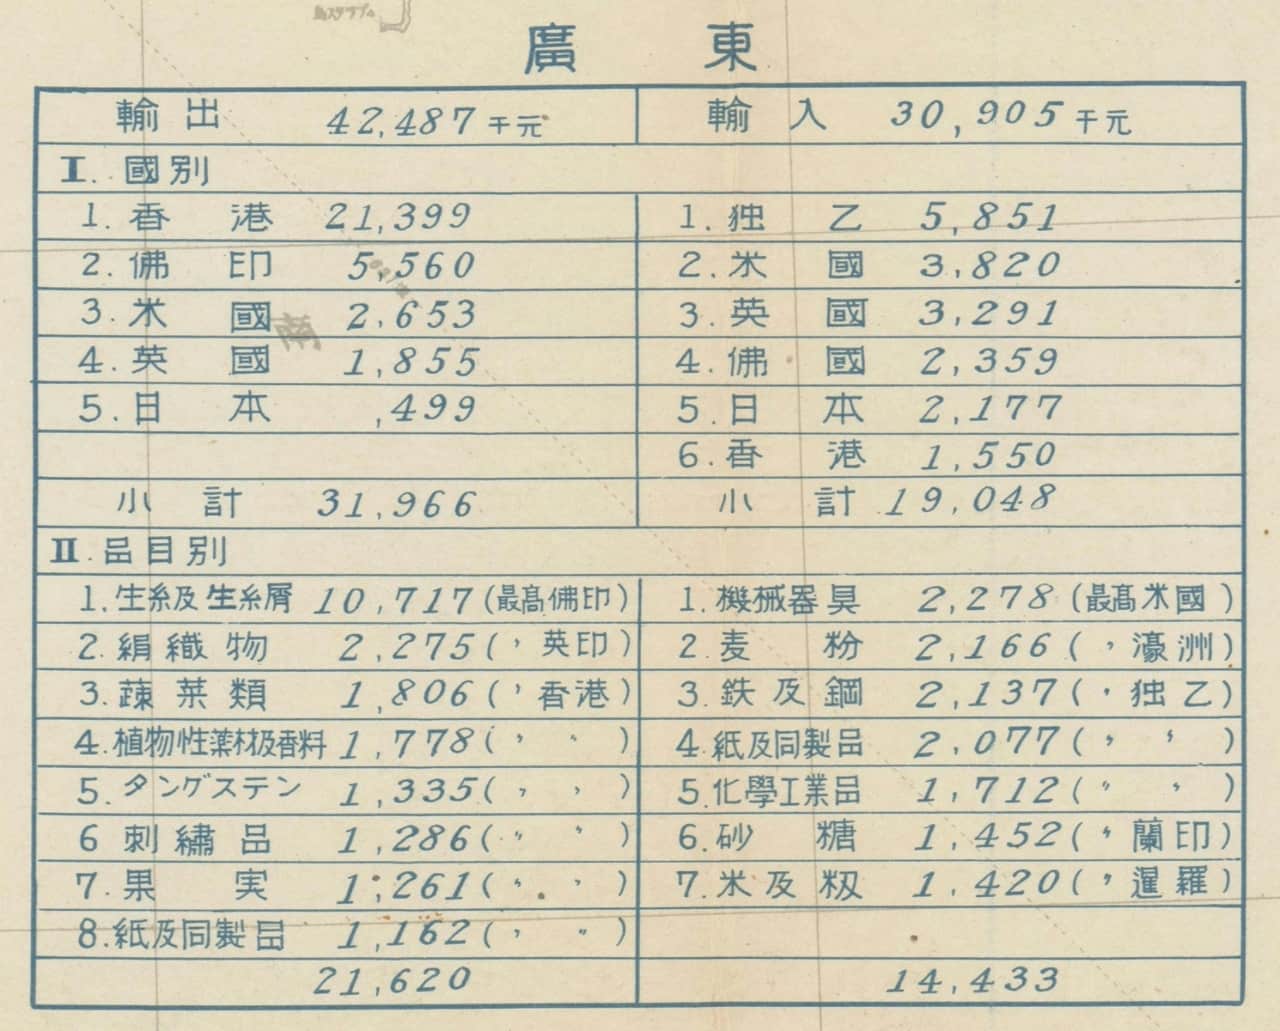 廣東
輸出 42,487千元 輸入 30,905千元
I. 國別
1.香港 21,399 1.独乙 5,851
2.佛印 5,560 2.米國 3,820
3.米國 2,653 3.英國 3,291
4.英國 1,855 4.佛國 2,359
5.日本 ,499 5.日本 2,177
6.香港 1,550
小計 31,966 小計 19,048
II.品目別
1.生糸及生糸屑 10,717(最高佛印) 1.機械器具 2,278(最高米國)
2.絹織物 2,275(〃英印) 2.麦粉 2,166(〃濠洲)
3.蔬菜類 1,806(〃香港) 3.鉄及鋼 2,137(〃独乙)
4.植物性薬材及香料 1,778(〃〃) 4.紙及同製品 2,077(〃〃)
5.タングステン 1,335(〃〃) 5.化學工業品 1,712(〃〃)
6刺繡品 1,286(〃〃) 6.砂糖 1,452(〃蘭印)
7.果実 1,261(〃〃) 7.米及籾 1,420(〃暹羅)
8.紙及同製品 1,162(〃〃)
21,620 14,433
南